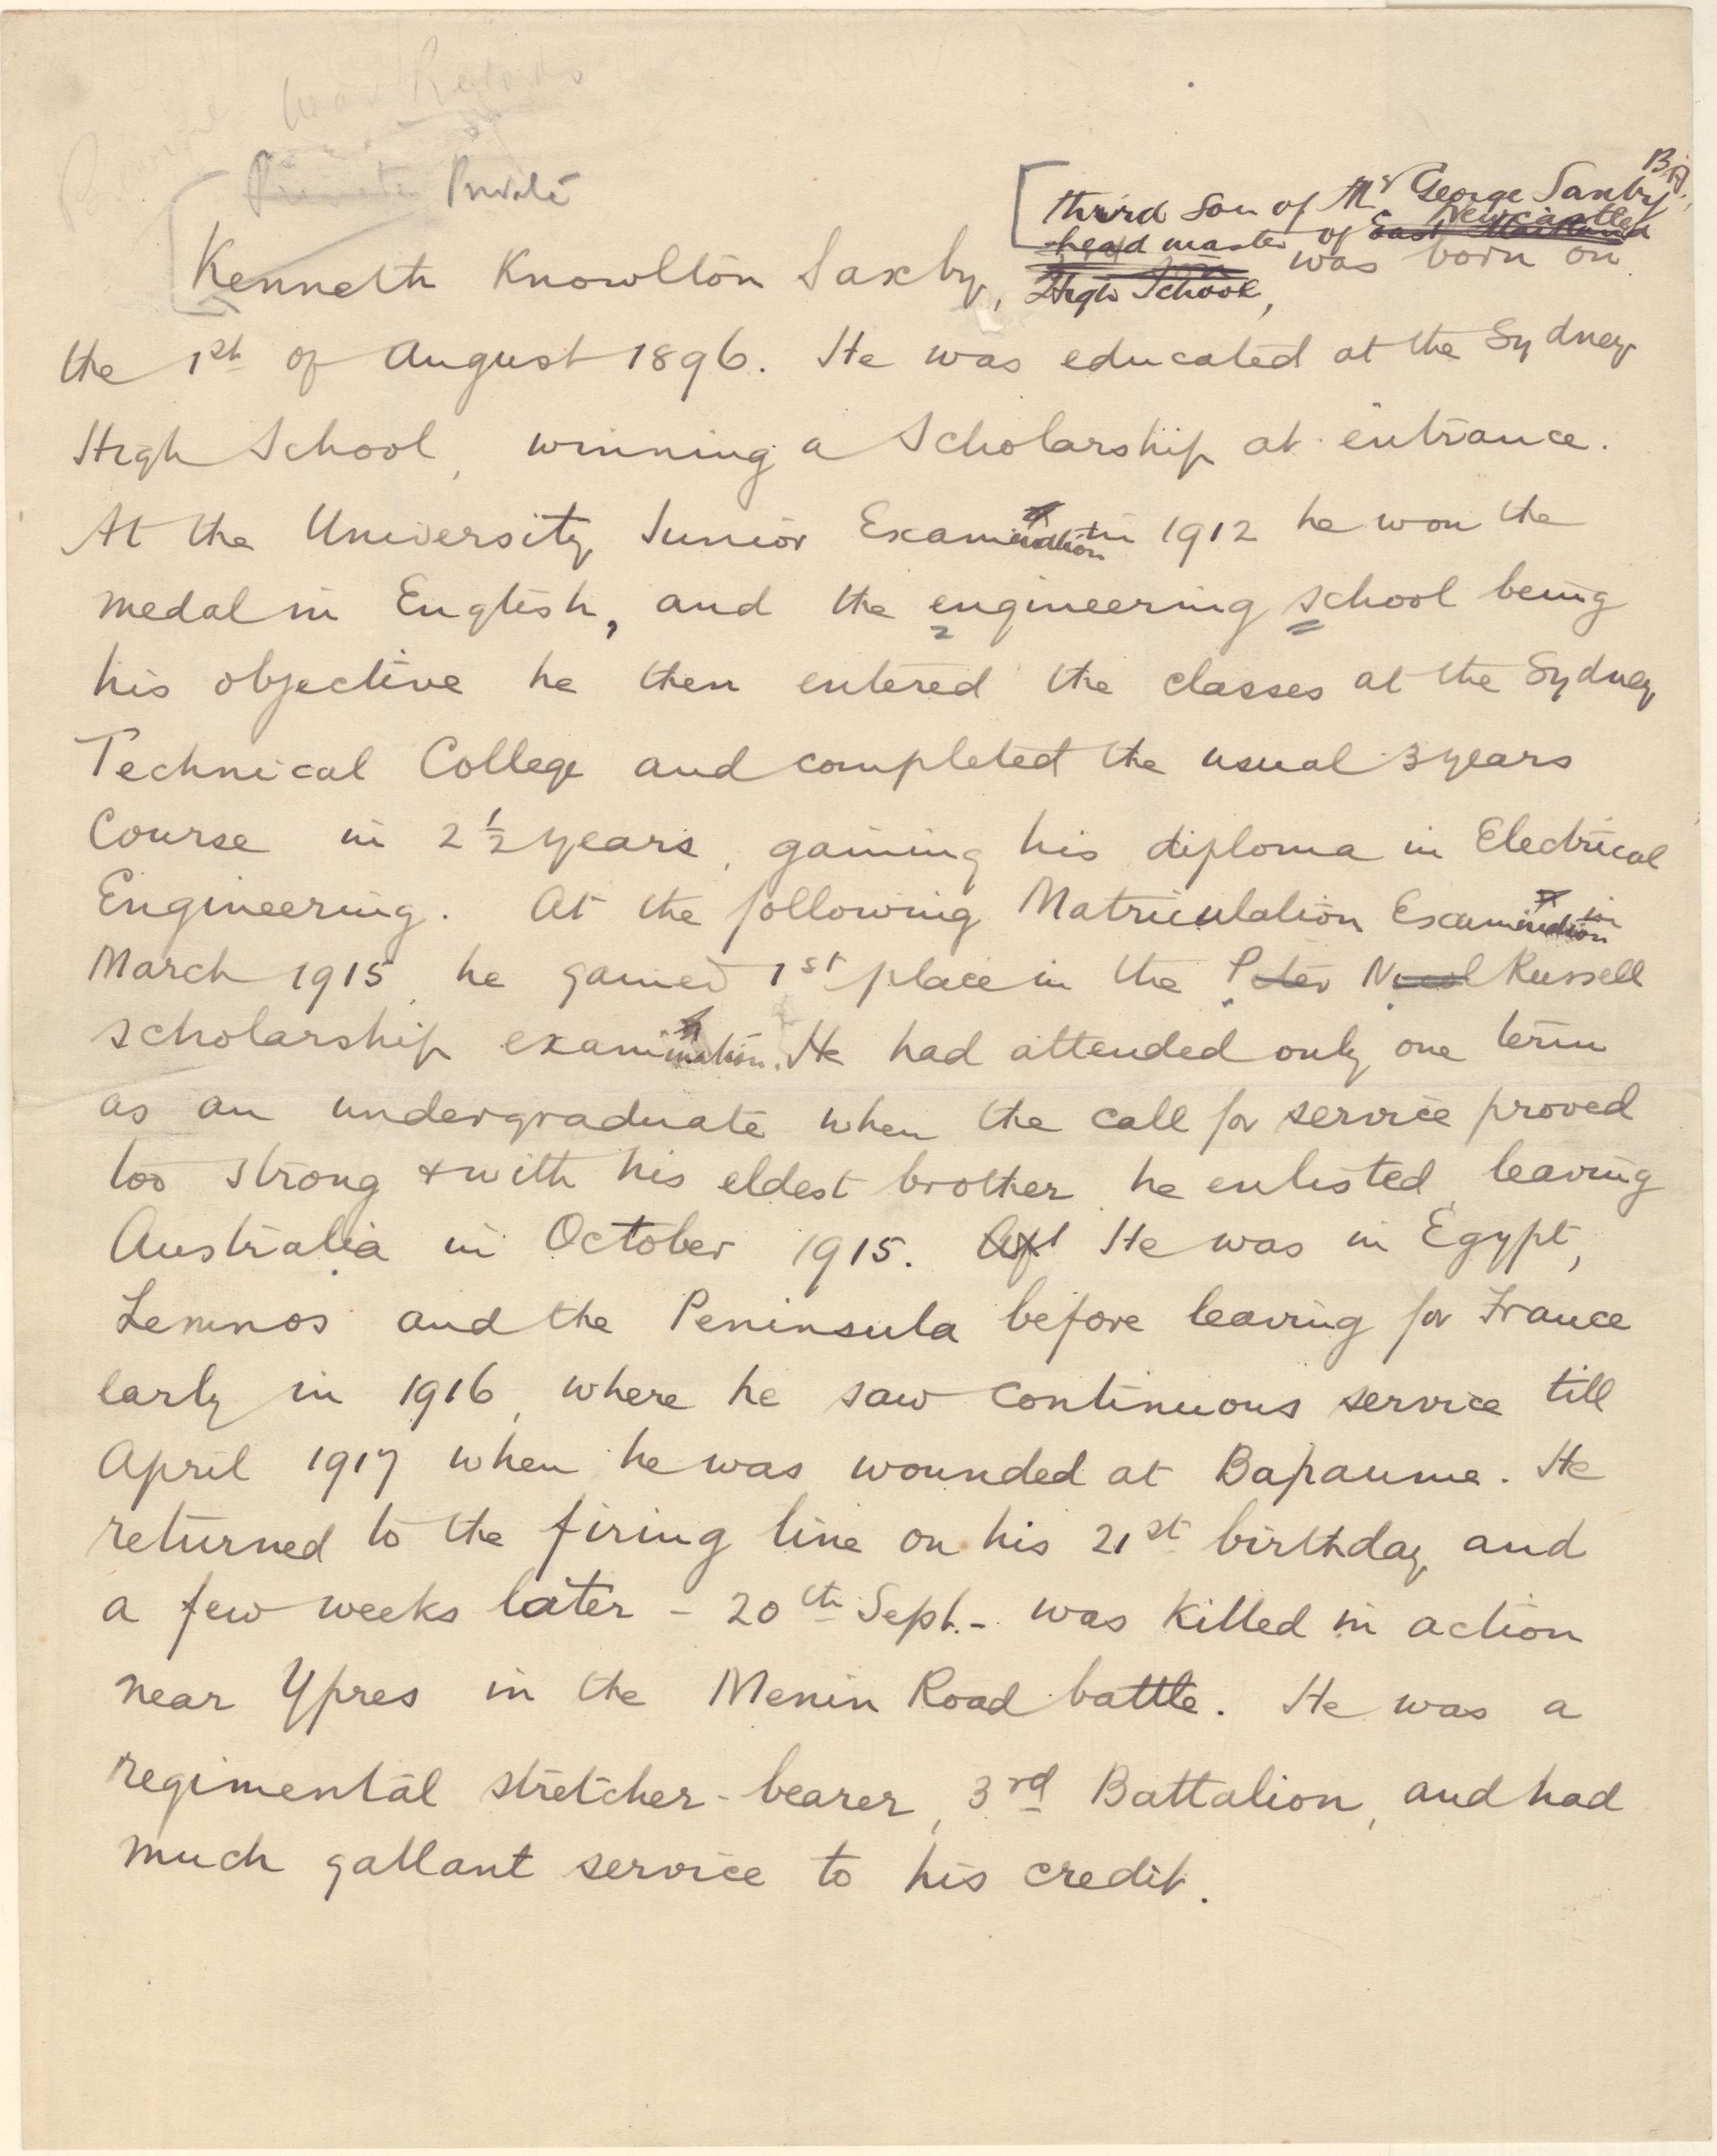 War Records
Private Private
third son of Mr George Saxby B.A.,
Newcastle
head master of East Maitland
Kenneth Knowlton Saxby, High School, was born on
the 1st of August 1896. He was educated at the Sydney
High School, winning a Scholarship at entrance.
At the University Junior Examination in 1912 he won the
medal in English, and the engineering school being
his objective he then entered the classes at the Sydney
Technical College and completed the usual 3 years
Course in 2 1/2 years, gaining his diploma in Electrical
Engineering. At the following Matriculation Examination in
March 1915, he gained 1st place in the Peter Nicol Russell
scholarship examination. He had attended only one term
as an undergraduate when the call for service proved
too strong & with his eldest brother he enlisted, leaving
Australia in October 1915. Aft He was in Egypt,
Lemnos and the Peninsula before leaving for France
early in 1916, where he saw continuous service till
April 1917 when he was wounded at Bapaume. He
returned to the firing line on his 21st birthday and
a few weeks later - 20th Sept. - was killed in action
near Ypres in the Menin Road battle. He was a
regimental stretcher-bearer, 3rd Battalion, and had
much gallant service to his credit.